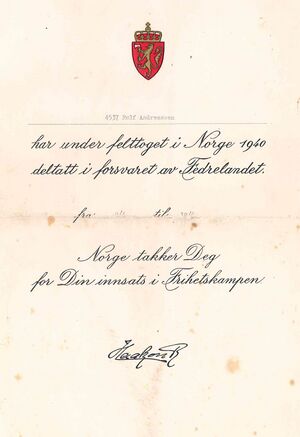 4537 Rolf Andreassen
har under felttoget i Norge 1940
deltatt i forsvaret av Fedrelandet.
fra: til:
Norge takker Deg
for Din innsats i Frihetskampen
Haakon R